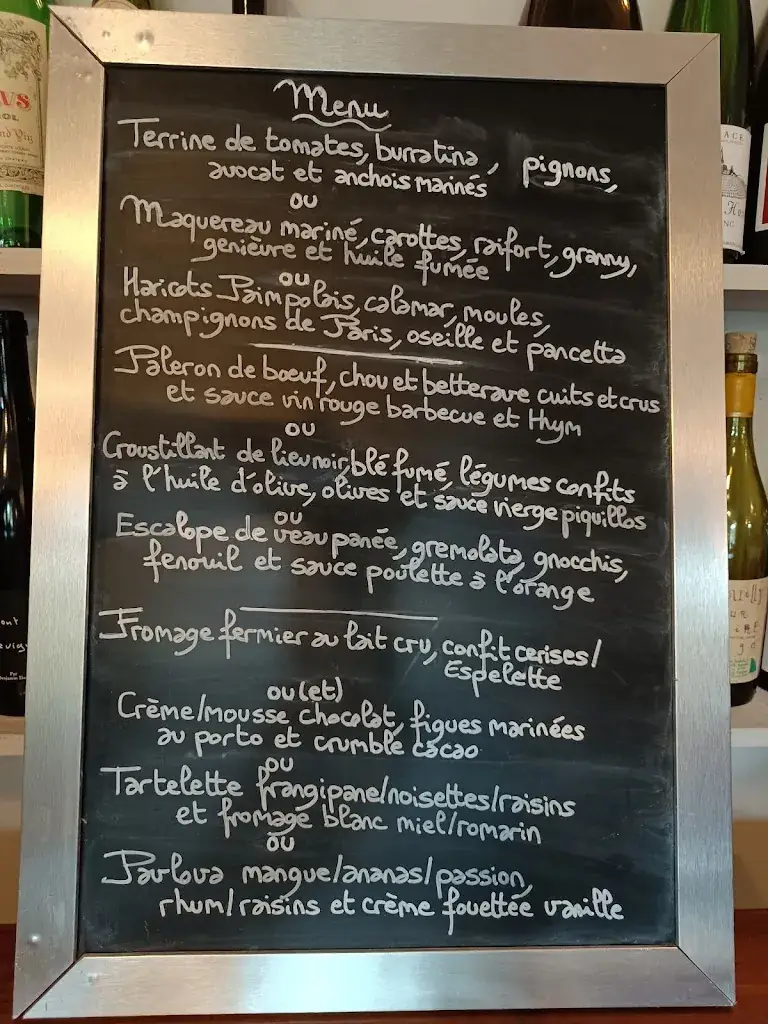 Menu
Terrine de tomates, burratina, pignons,
avocat et anchois marinés
ou
Maquereau mariné, carottes, raifort, granny,
genièvre et huile fumée
ou
Haricots Paimpolais, calamar, moules,
champignons de Paris, oseille et pancetta
Paleron de bœuf, chou et betterave cuits et crus
et sauce vin rouge barbecue et thym
ou
Croustillant de lieu noir, blé fumé, légumes confits
à l'huile d'olive, olives et sauce vierge piquillos
ou
Escalope de veau panée, gremolata, gnocchis,
fenouil et sauce poulette à l'orange
Fromage fermier au lait cru, confit cerises/
Espelette
ou (et)
Crème/mousse chocolat, figues marinées
au porto et crumble cacao
ou
Tartelette frangipane/noisettes/raisins
et fromage blanc miel/romarin
ou
Pavlova mangue/ananas/passion,
rhum/raisins et crème fouettée vanille